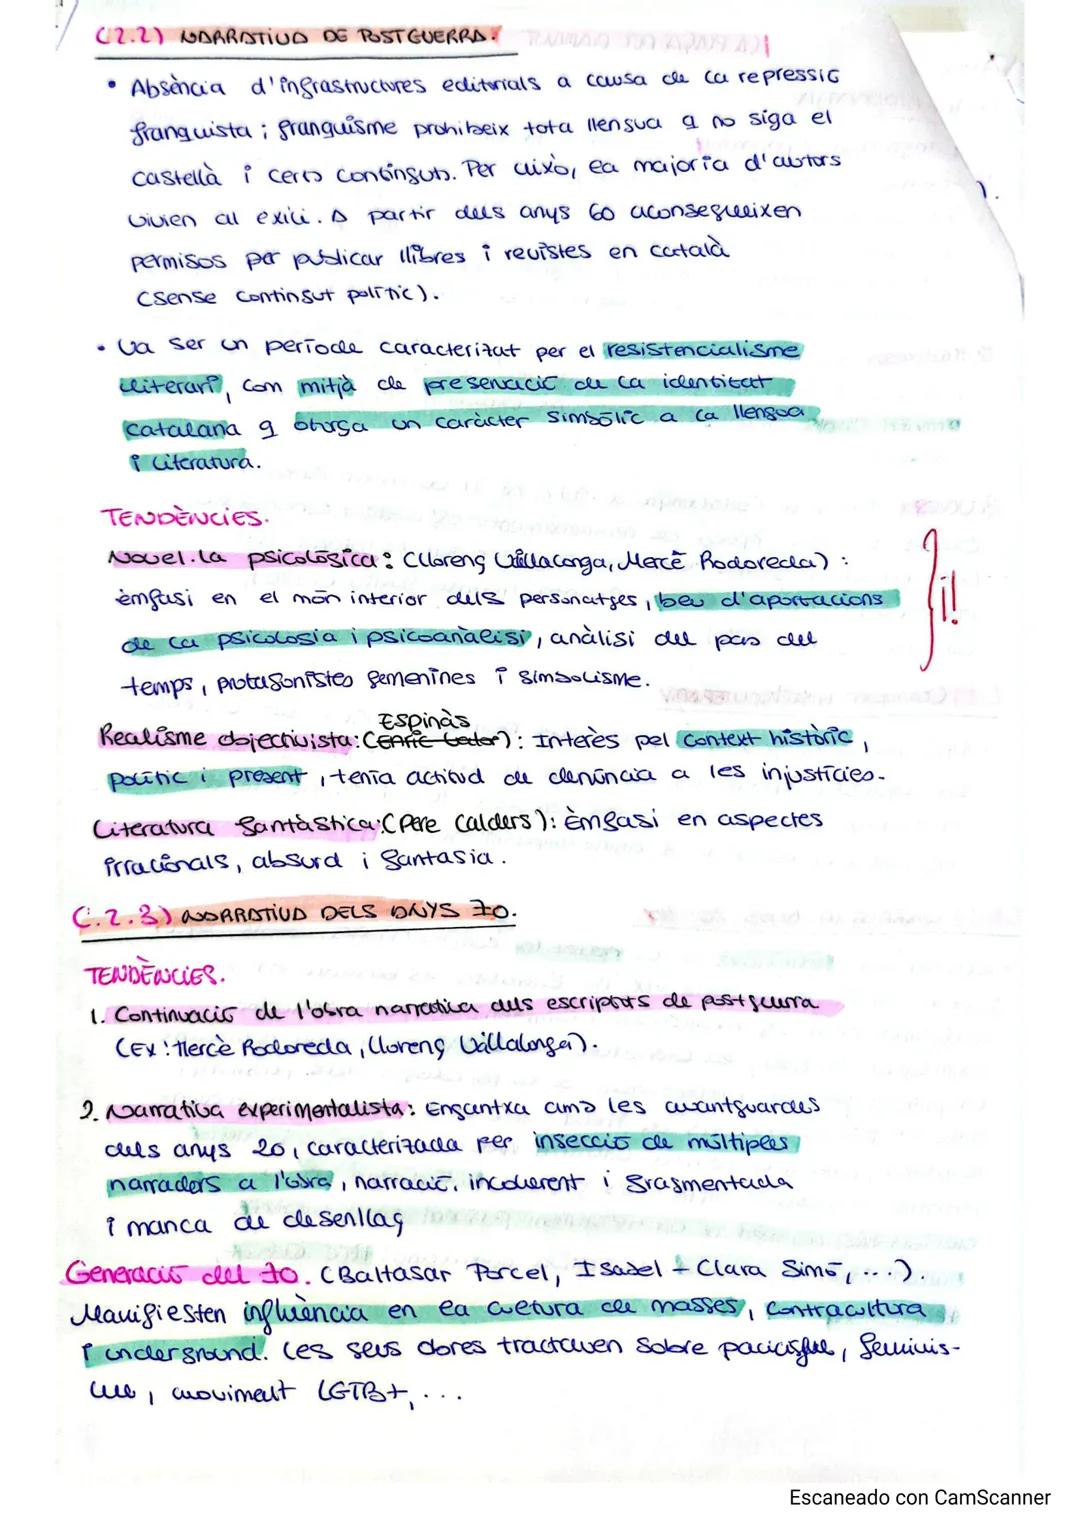 C.2.2) NARRATIVA DE POSTGUERRA.
• Absència d'infrastructures editorials a causa de la repressió
franquista; franquisme prohibeix tota llengua q no siga el
castellà i certs continguts. Per això, la majoria d'autors
vivien al exili. A partir dels anys 60 aconsegueixen
permisos per publicar llibres i revistes en català
(sense contingut polític).
• Va ser un període caracteritzat per el resistencialisme
lliterari, com mitjà de preservació de la identitat
catalana q otorga un caràcter simbòlic a la llengua
i literatura.
TENDÈNCIES.
Novel·la psicològica: (Llorenç Villalonga, Mercè Rodoreda):
èmfasi en el món interior dels personatges, beu d'aportacions
de la psicologia i psicoanàlisi, anàlisi del pas del
temps, protagonistes femenines i simbolisme.
¡!
Espinàs
Realisme objectivista: (): Interès pel context històric,
polític i present, tenia actitud de denúncia a les injustícies.
Literatura fantàstica: (Pere Calders): Èmfasi en aspectes
irracionals, absurd i fantasia.
C.2.3) NARRATIVA DELS ANYS 70.
TENDÈNCIES.
1. Continuació de l'obra narrativa dels escriptors de postguerra
(Ex: Mercè Rodoreda, Llorenç Villalonga).
2. Narrativa experimentalista: Engantxa amb les avantguardes
dels anys 20, caracteritzada per insecció de múltiples
narradors a l'obra, narració incoherent i fragmentada
i manca de desenllaç
Generació del 70. (Baltasar Porcel, Isabel + Clara Simó, ...).
Manifiesten influència en la cultura de masses, contracultura
i underground. Les seus obres tractaven sobre pacifisme, feminis-
me, moviment LGTB+, ...
Escaneado con CamScanner